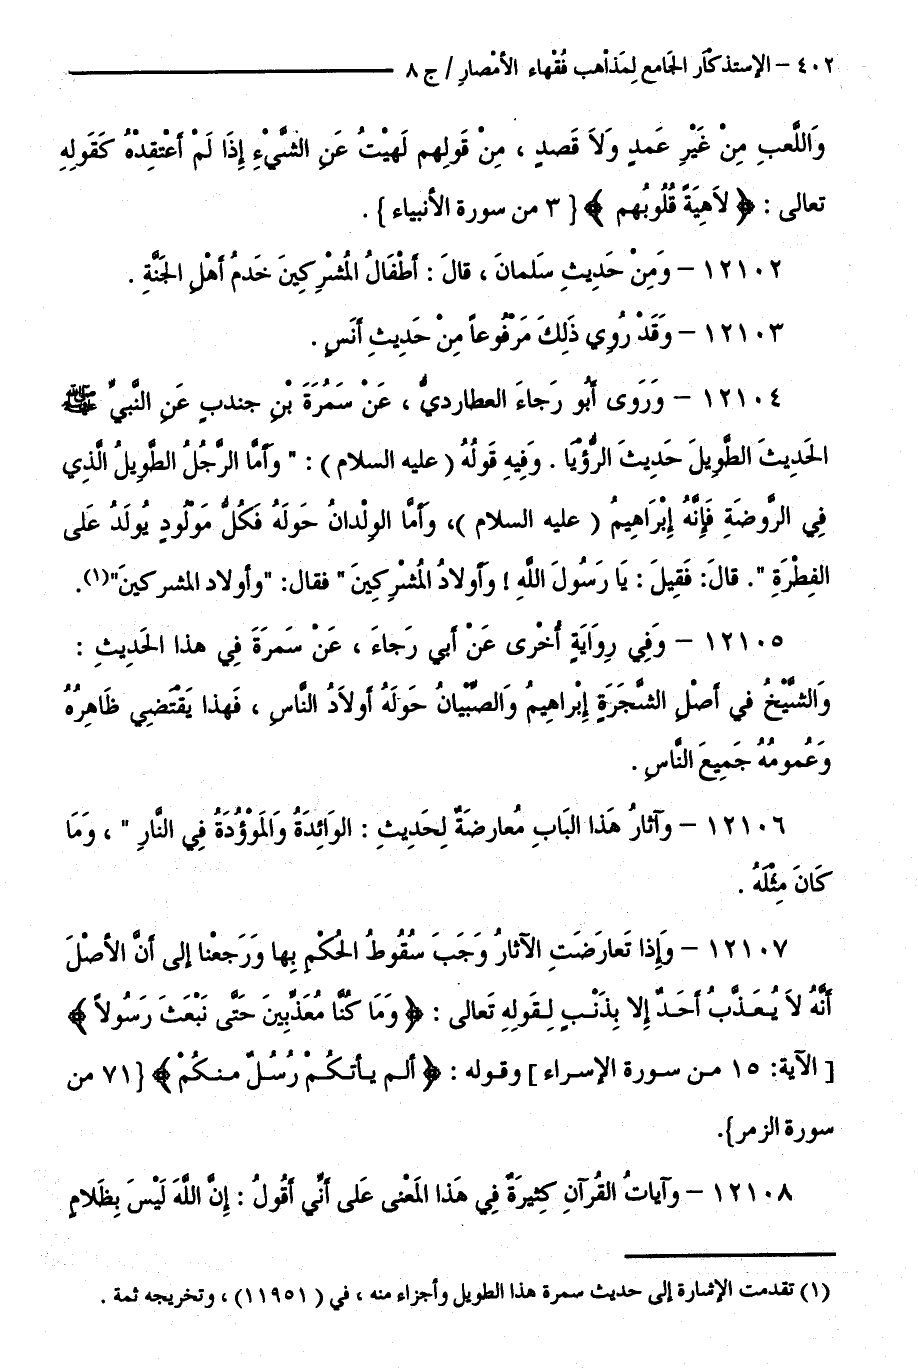 ٤٠٢ – الإستذكَار الجَامع لِمَذاهب فُقْهاء الأمْصارِ / ج ٨
وَاللَّعبِ مِنْ غَيْرِ عَمدٍ وَلاَ قَصدٍ ، مِنْ قَولِهم لَهيْتُ عَنِ الشَّيْءِ إذَا لَمْ أَعْتقِدْهُ كَقَولِهِ
تعالى : ﴿ لاَهِيَةً قُلُوبُهم ﴾ { ٣ من سورة الأنبياء } .
١٢١٠٢ – وَمِنْ حَديثِ سَلمانَ ، قالَ : أطْفَالُ المُشْرِكِينَ خَدمُ أهْلِ الجَنَّةِ .
١٢١٠٣ – وَقَدْ رُوِي ذَلِكَ مَرْفُوعاً مِنْ حَدِيثِ أنَسٍ .
١٢١٠٤ – وَرَوَى أَبُو رَجاءَ العطارديُّ ، عَنْ سَمُرَةَ بْنِ جندبٍ عَنِ النَّبيِّ ﷺ
الحَديثَ الطَّوِيلَ حَديثَ الرُّؤيَا . وَفِيهِ قَولُهُ ( عليه السلام ) : " وأمَّا الرَّجُلُ الطَّوِيلُ الَّذِي
فِي الرَّوضَةِ فَإنَّهُ إبْرَاهِيمُ ( عليه السلام )، وَأمَّا الوِلْدانُ حَولَهُ فَكُلُّ مَوْلُودٍ يُولَدُ عَلى
الفِطْرَةِ ". قالَ: فَقِيلَ : يَا رَسُولَ اللَّهِ ! وَأولادُ المُشْرِكِينَ" فقال: "وأولاد المشركينَ"(١).
١٢١٠٥ – وَفِي رِوَايَةٍ أُخْرى عَنْ أبي رَجاءَ ، عَنْ سَمرَةَ فِي هذا الحَديثِ :
وَالشَّيْخُ في أصْلِ الشَّجَرَةِ إبْراهِيمُ وَالصِّبْيَانُ حَولَهُ أولاَدُ النَّاسِ ، فَهذا يَقْتَضِي ظَاهِرُهُ
وَعُمومُهُ جَمِيعَ النَّاسِ .
١٢١٠٦ – وآثارُ هَذا البَابِ مُعارضَةٌ لِحَديثِ : الوَائِدَةُ وَالمَوْؤُدَةُ فِي النَّارِ " ، وَمَا
كَانَ مِثْلَهُ .
١٢١٠٧ – وَإِذا تَعارَضَتِ الآثارُ وَجَبَ سُقُوطُ الحُكْمِ بِها وَرَجعْنا إلى أنَّ الأصْلَ
أنَّهُ لاَ يُـعَـذَّبُ أحَـدٌ إلا بِذَنْـبٍ لِـقَولِهِ تَعالى : ﴿ وَمَا كُنَّا مُعَذِّبينَ حَتَّى نَبْعَثَ رَسُولاً ﴾
[ الآية: ١٥ مـن سـورة الإسـراء ] وقـوله : ﴿ ألـم يـأتـكُـمْ رُسُـلٌ مـنـكُمْ ﴾ {٧١ من
سورة الزمر}.
١٢١٠٨ – وآياتُ القُرآنِ كَثِيرَةٌ فِي هَذا المَعْنى عَلى أنِّي أقُولُ : إنَّ اللَّهَ لَيْسَ بِظَلامٍ
(١) تقدمت الإشارة إلى حديث سمرة هذا الطويل وأجزاء منه ، في ( ١١٩٥١) ، وتخريجه ثمة .